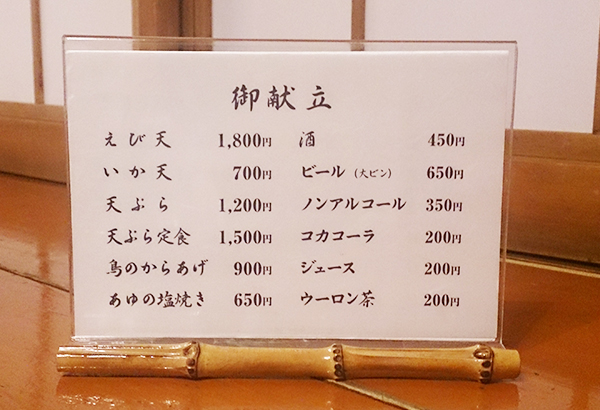 御献立
えび天 1,800円
いか天 700円
天ぷら 1,200円
天ぷら定食 1,500円
鳥のからあげ 900円
あゆの塩焼き 650円
酒 450円
ビール (大ビン) 650円
ノンアルコール 350円
コカコーラ 200円
ジュース 200円
ウーロン茶 200円